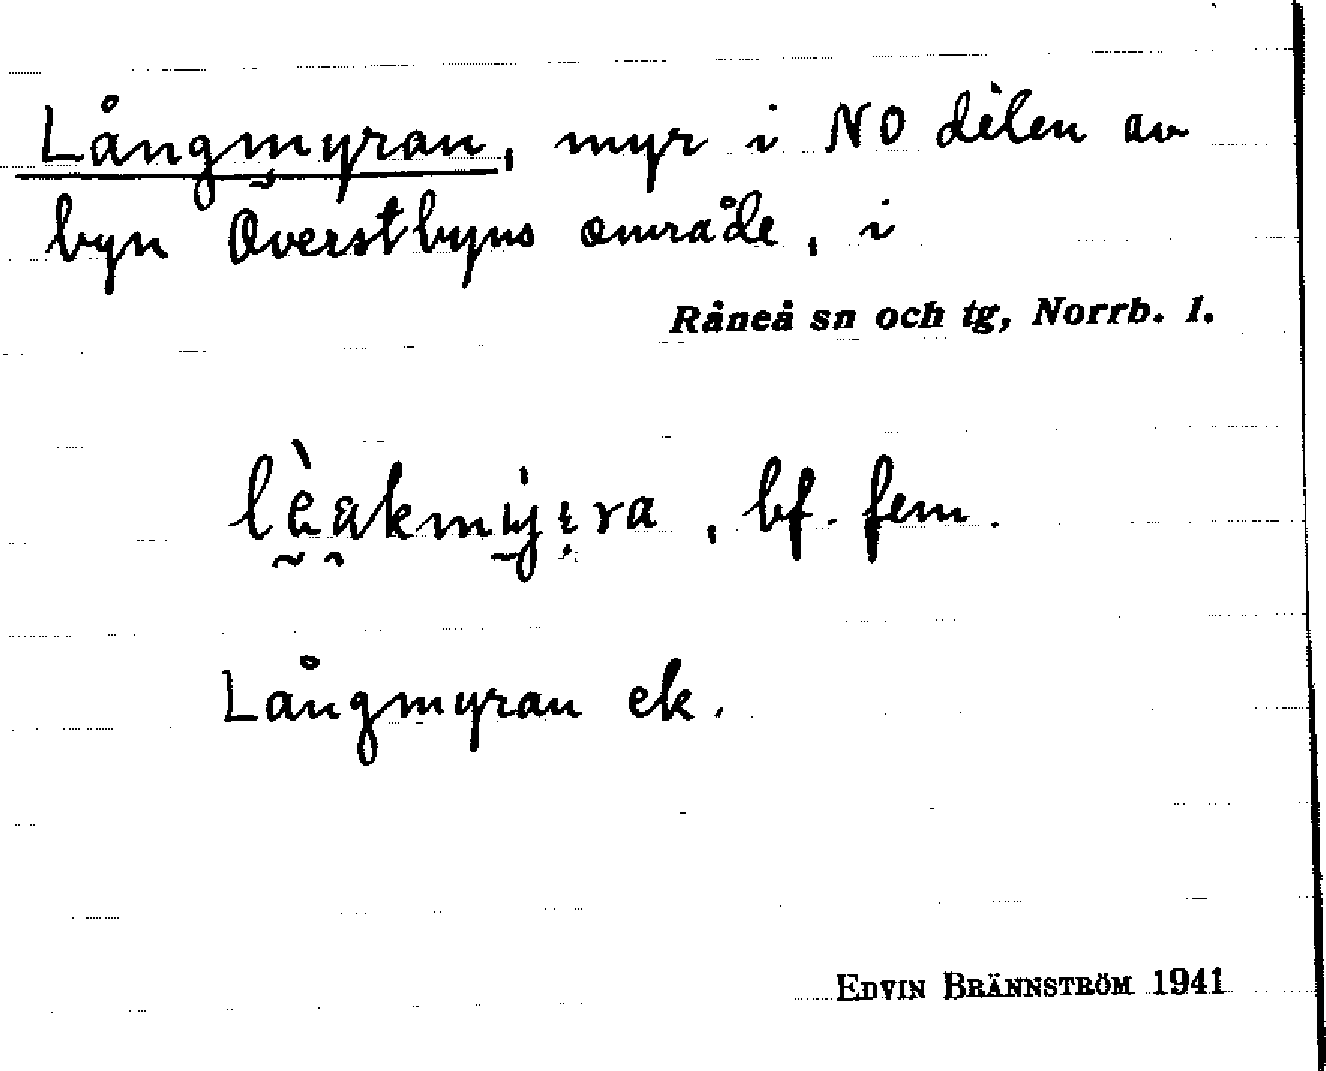 Långmyran, myr i NO delen av
byn Överstbyns område, i
Råneå sn och tg, Norrb. l.
bf. fem.
Långmyran ek.
EDVIN BRÄNNSTRÖM 1941